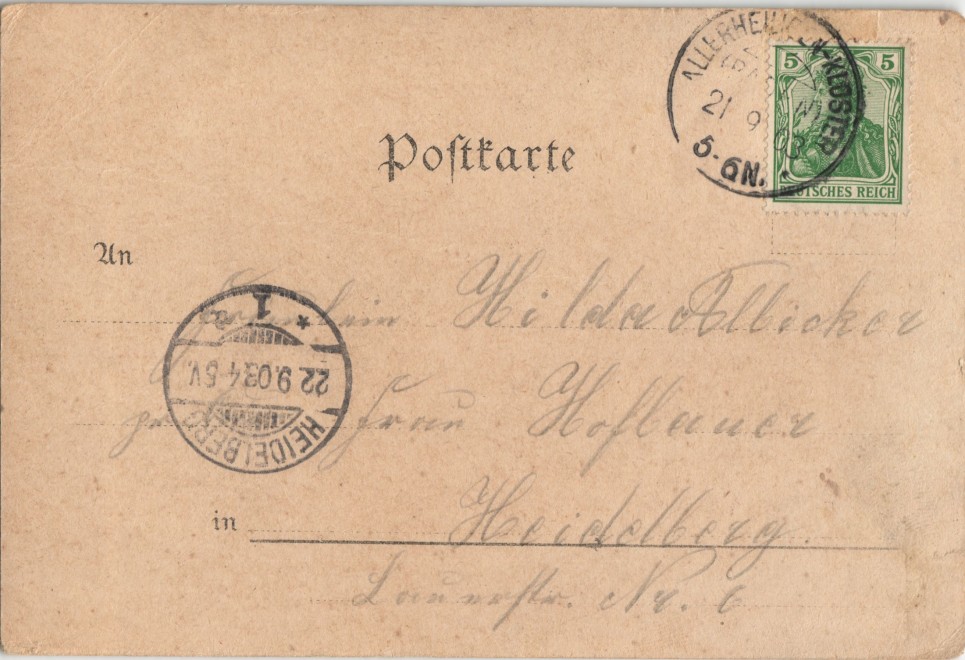 ALLERHEILIGEN-KLOSTER
21 9 03
5-6N.
5 5
DEUTSCHES REICH
Postkarte
An
Fräulein Hilda Albicker
Frau Hoflauer
in Heidelberg
Lauerstr. Nr. 6
HEIDELBERG
22.9.03.4-5V.
* 1